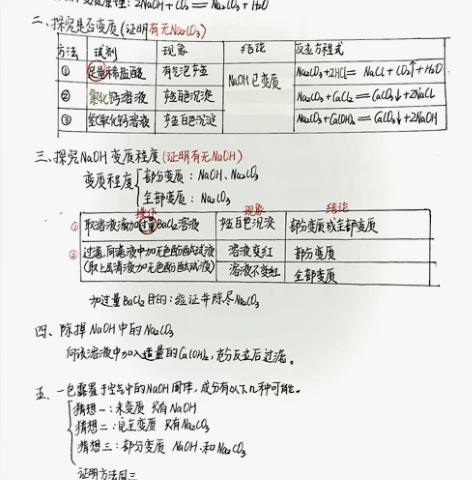 2NaOH + CO₂ = Na₂CO₃ + H₂O
二、探究是否变质(证明有无Na₂CO₃)
方法 试剂 现象 结论 反应方程式
① 足量稀盐酸 有气泡产生 NaOH已变质 Na₂CO₃+2HCl=2NaCl+CO₂↑+H₂O
② 氯化钙溶液 产生白色沉淀 Na₂CO₃+CaCl₂=CaCO₃↓+2NaCl
③ 氢氧化钙溶液 产生白色沉淀 Na₂CO₃+Ca(OH)₂=CaCO₃↓+2NaOH
三、探究NaOH变质程度(证明有无NaOH)
变质程度 部分变质:NaOH、Na₂CO₃
全部变质:Na₂CO₃
操作 现象 结论
① 取溶液滴加过量BaCl₂溶液 产生白色沉淀 部分变质或全部变质
② 过滤,向滤液中加无色酚酞试液 溶液变红 部分变质
(取上层清液加无色酚酞试液) 溶液不变红 全部变质
加过量BaCl₂目的:验证并除尽Na₂CO₃
四、除掉NaOH中的Na₂CO₃
向该溶液中加入适量的Ca(OH)₂,充分反应后过滤。
五、一包露置于空气中的NaOH固体,成分有以下几种可能。
猜想一:未变质 只有NaOH
猜想二:完全变质 只有Na₂CO₃
猜想三:部分变质 NaOH和Na₂CO₃
证明方法同三